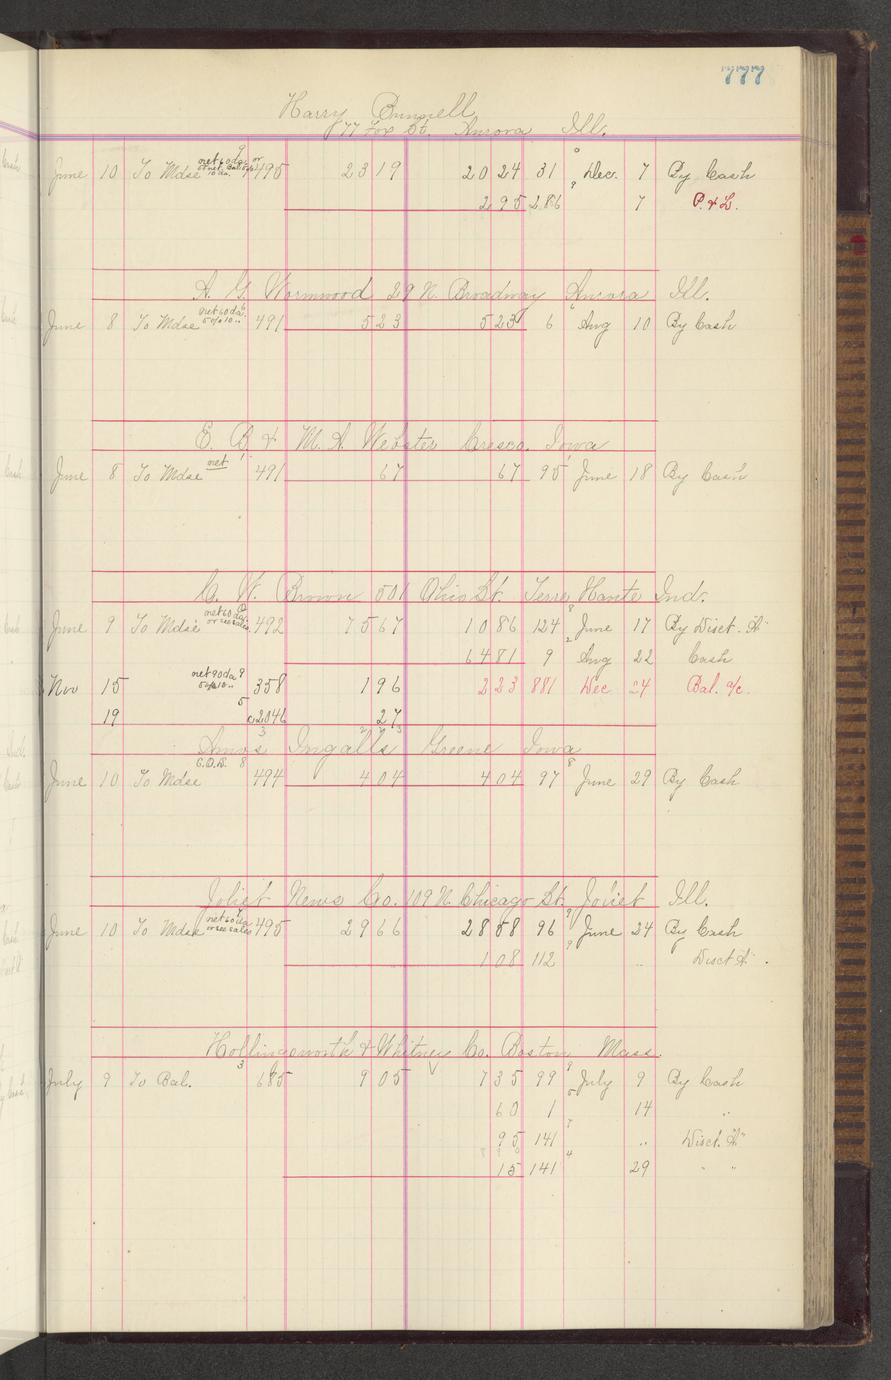 777
Harry Bunnell
77 Fox St. Aurora Ill.
June 10 To Mdse net 60 da or 495 2319 2024 31 Dec. 7 By Cash
295 286 7 P. & L.
A. G. Wormwood 29 N. Broadway Aurora Ill.
June 8 To Mdse net 60 da 5% 10 " 491 523 523 6 Aug 10 By Cash
E. B. & M. A. Webster Cresco, Iowa
June 8 To Mdse net 491 67 67 95 June 18 By Cash
C. W. Brown 501 Ohio St. Terre Haute Ind.
June 9 To Mdse net 60 da or see sales 492 7567 1086 124 June 17 By Disct. "A"
6481 9 Aug 22 Cash
Nov 15 net 90 da 5% 10 " 358 196 223 881 Dec 24 Bal. a/c.
19 c2046 27
Amos Ingalls Greene Iowa
June 10 To Mdse C.O.D. 494 404 404 97 June 29 By Cash
Joliet News Co. 109 N. Chicago St. Joliet Ill.
June 10 To Mdse net 60 da or see sales 495 2966 2858 96 June 24 By Cash
108 112 " Disct "A"
Hollingsworth & Whitney Co. Boston Mass.
July 9 To Bal. 685 905 735 99 July 9 By Cash
60 1 14 "
95 141 " Disct. "A"
15 141 29 " "